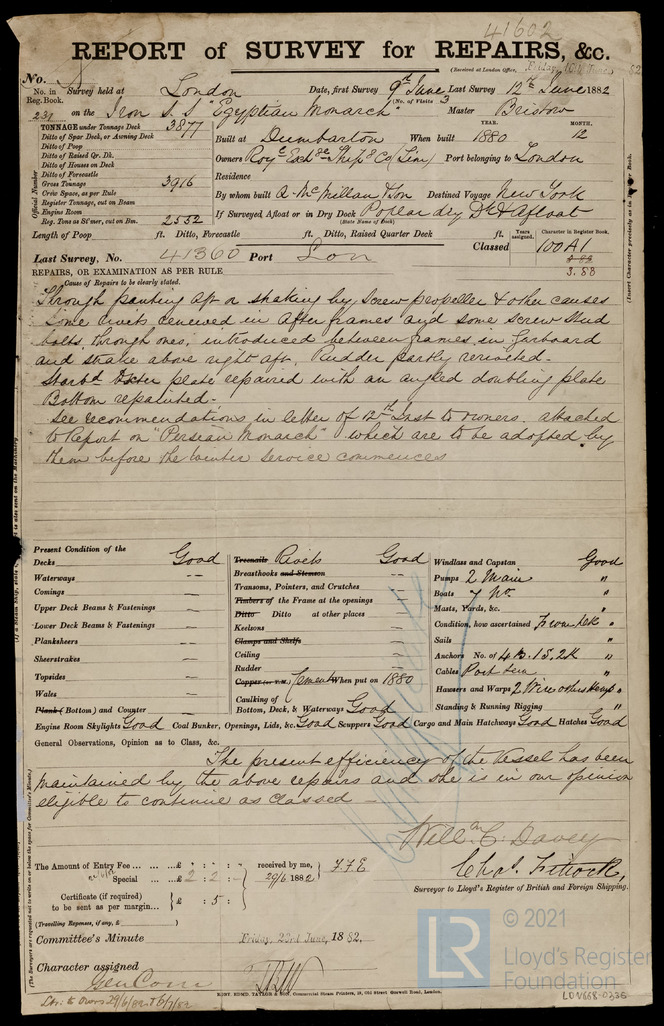 41602
REPORT of SURVEY for REPAIRS, &c.
(Received at London Office,
No. in Reg. Book. Survey held at London Date, First Survey 9th June Last Survey 12th June 1882
(No. of Visits 3
231 on the Iron S.S "Egyptian Monarch" Master Bristow
TONNAGE under Tonnage Deck 3877
Ditto of Spar Deck, or Awning Deck
Ditto of Poop
Ditto of Raised Qr. Dk.
Ditto of Houses on Deck
Ditto of Forecastle
Gross Tonnage 3916
Crew Space, as per Rule
Register Tonnage, cut on Beam
Engine Room
Reg. Tons as St'mer, cut on Bm. 2552
Official Number
YEAR. MONTH.
Built at Dumbarton When built 1880 12
Owners Roy. Exch.ge Ship.g Co (Lim) Port belonging to London
Residence
By whom built A. McMillan & Son Destined Voyage New York
If Surveyed, Afloat or in Dry Dock Poplar dry Dk & Afloat
(State Name of Dock)
Length of Poop ft. Ditto, Forecastle ft. Ditto, Raised Quarter Deck ft.
Years assigned. Character in Register Book.
Classed 100A1
3.83
Last Survey, No. 41360 Port Lon
REPAIRS, OR EXAMINATION AS PER RULE
Cause of Repairs to be clearly stated.
Through panting aft or shaking by screw propeller & other causes
some rivets renewed in after frames and some screw stud
bolts, through ones, introduced between frames in garboard
and strake above right aft. Rudder partly reriveted.-
Starbd Oxter plate repaired with an angled doubling plate
Bottom repainted.-
See recommendations in letter of 12th Inst to owners. attached
to Report on "Persian Monarch" which are to be adopted by
them before the Winter Service commences
Present Condition of the
Decks Good
Waterways —
Comings —
Upper Deck Beams & Fastenings —
Lower Deck Beams & Fastenings —
Planksheers —
Sheerstrakes —
Topsides —
Wales —
Plank (Bottom) and Counter —
Treenails Rivets Good
Breasthooks and Stemson —
Transoms, Pointers, and Crutches —
Timbers of the Frame at the openings —
Ditto Ditto at other places —
Keelsons —
Clamps and Shelfs —
Ceiling —
Rudder —
Copper (or Y.M.) Cement When put on 1880
Caulking of Bottom, Deck, & Waterways Good
Windlass and Capstan Good
Pumps 2 Main "
Boats 7 No "
Masts, Yards, &c. "
Condition, how ascertained From deck "
Sails "
Anchors No. of 4B. 1S. 2K "
Cables "
Hawsers and Warps 2 Wire others Hemp "
Standing & Running Rigging "
Engine Room Skylights Good Coal Bunker, Openings, Lids, &c. Good Scuppers Good Cargo and Main Hatchways Good Hatches Good
General Observations, Opinion as to Class, &c.
The present efficiency of the Vessel has been
maintained by the above repairs and she is in our opinion
eligible to continue as classed —
Will. C. Davey
Chas. Fittock,
Surveyor to Lloyd's Register of British and Foreign Shipping.
The Amount of Entry Fee ... £ : : received by me, F.F.E
Special ... £ 2 : 2 : — 29/6 1882
Certificate (if required) to be sent as per margin... £ : 5 :
(Travelling Expenses, if any, £ )
Committee's Minute Friday, 23rd June, 1882.
Character assigned
Ltr: to Owrs 29/6/82
© 2021
LR
Lloyd's Register
Foundation
LON668-0336